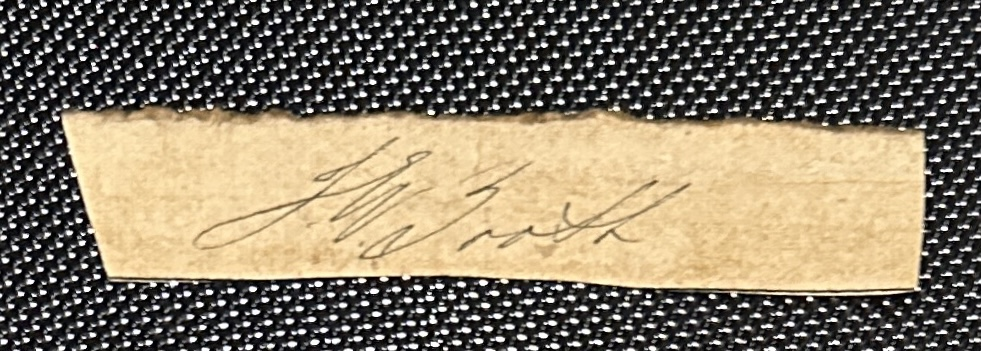 J. W. Booth